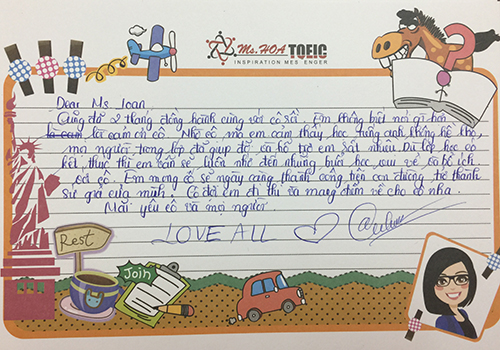 Ms. HOA TOEIC
INSPIRATION MES ENGER
Dear Ms Joan
Cũng đã 2 tháng đồng hành cùng với cô rồi. Em không biết nói gì hơn
là cảm ơn cô. Nhờ cô mà em cảm thấy học tiếng anh không hề khó,
mọi người trong lớp đã giúp đỡ và hỗ trợ em rất nhiều. Dù lớp học có
kết thúc thì em vẫn sẽ luôn nhớ đến những buổi học vui vẻ và bổ ích
với cô. Em mong cô sẽ ngày càng thành công trên con đường trở thành
sứ giả của mình. Cô đợi em đi thi và mang điểm về cho cô nha.
Mãi yêu cô và mọi người
LOVE ALL
Rest
Join